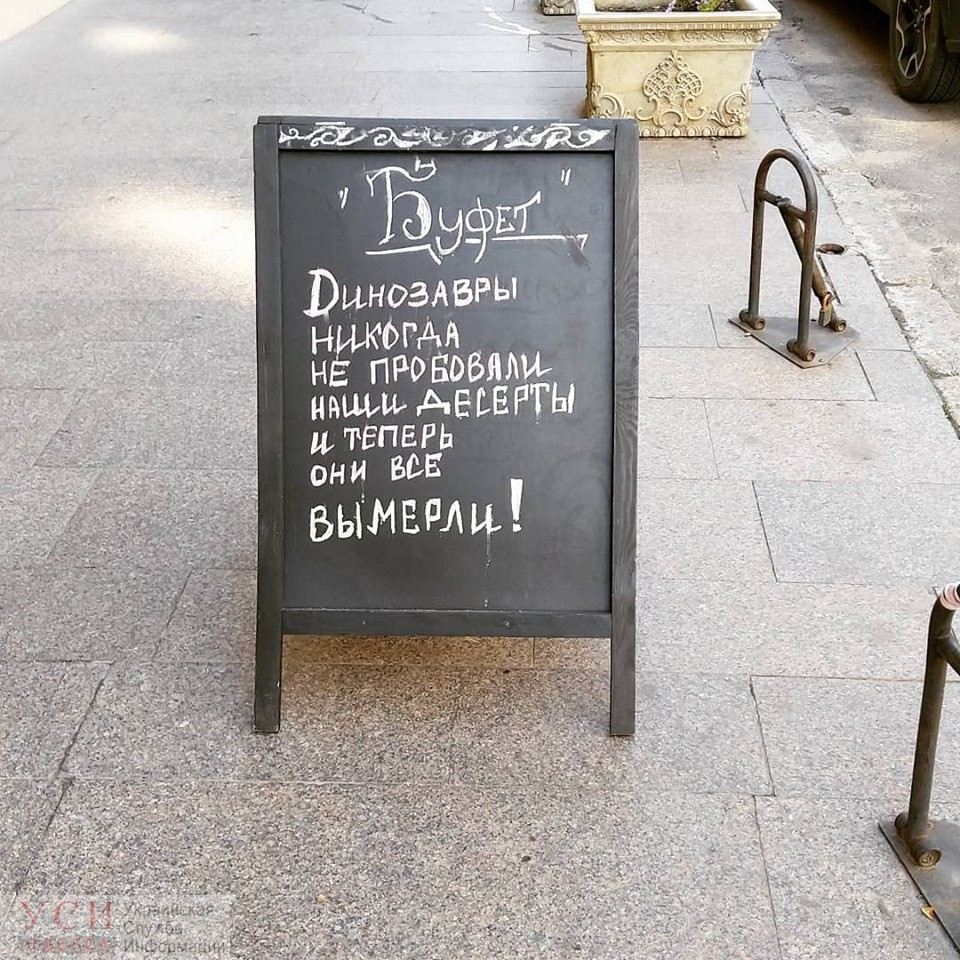 "Буфет"
Динозавры
никогда
не пробовали
наши десерты
и теперь
они все
вымерли!
УСИ Украинская
Служба
Одесса Информации